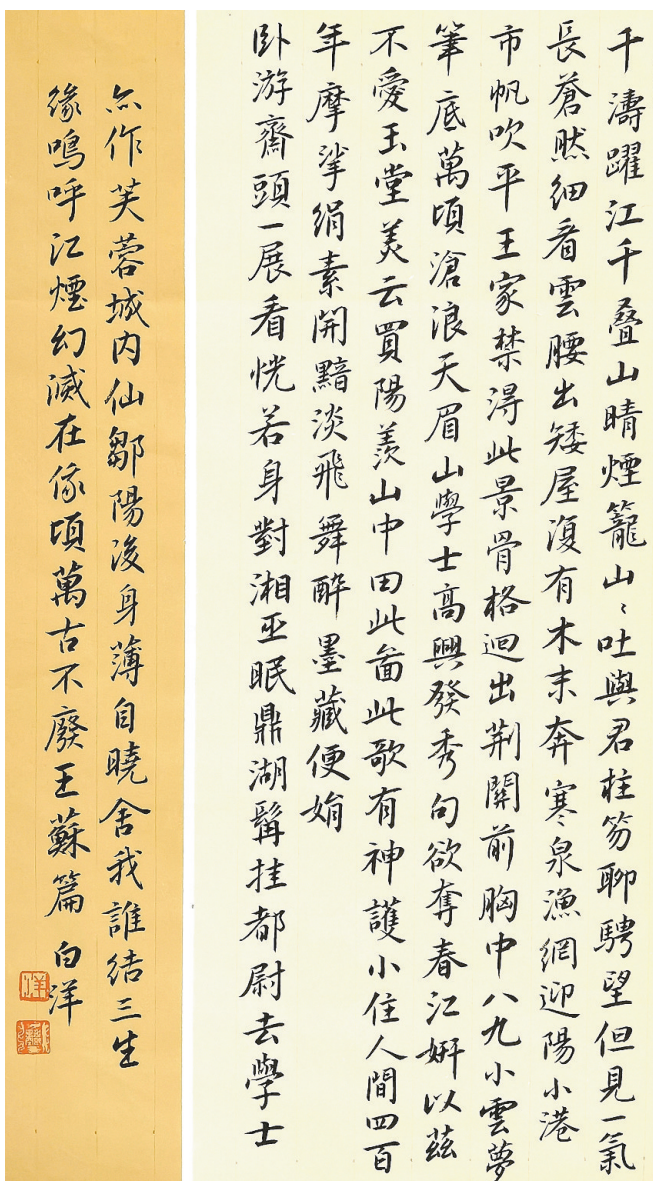 千濤躍江千叠山晴煙籠山〻吐與君柱笏聊騁望但見一氣
長蒼然細看雲腰出矮屋復有木末奔寒泉漁網迎陽小港
市帆吹平王家禁淂此景骨格迴出荆關前胸中八九小雲夢
筆底萬頃滄浪天眉山學士高興發秀句欲奪春江妍以茲
不愛玉堂美云買陽羨山中田此畣此歌有神護小住人間四百
年摩挲絹素開黯淡飛舞醉墨藏便娟
卧游齋頭一展看恍若身對湘巫眠鼎湖髯挂都尉去學士
亦作芙蓉城内仙鄒陽後身薄自曉舍我誰結三生
緣鳴呼江煙幻滅在俄頃萬古不廢王蘇篇 白洋